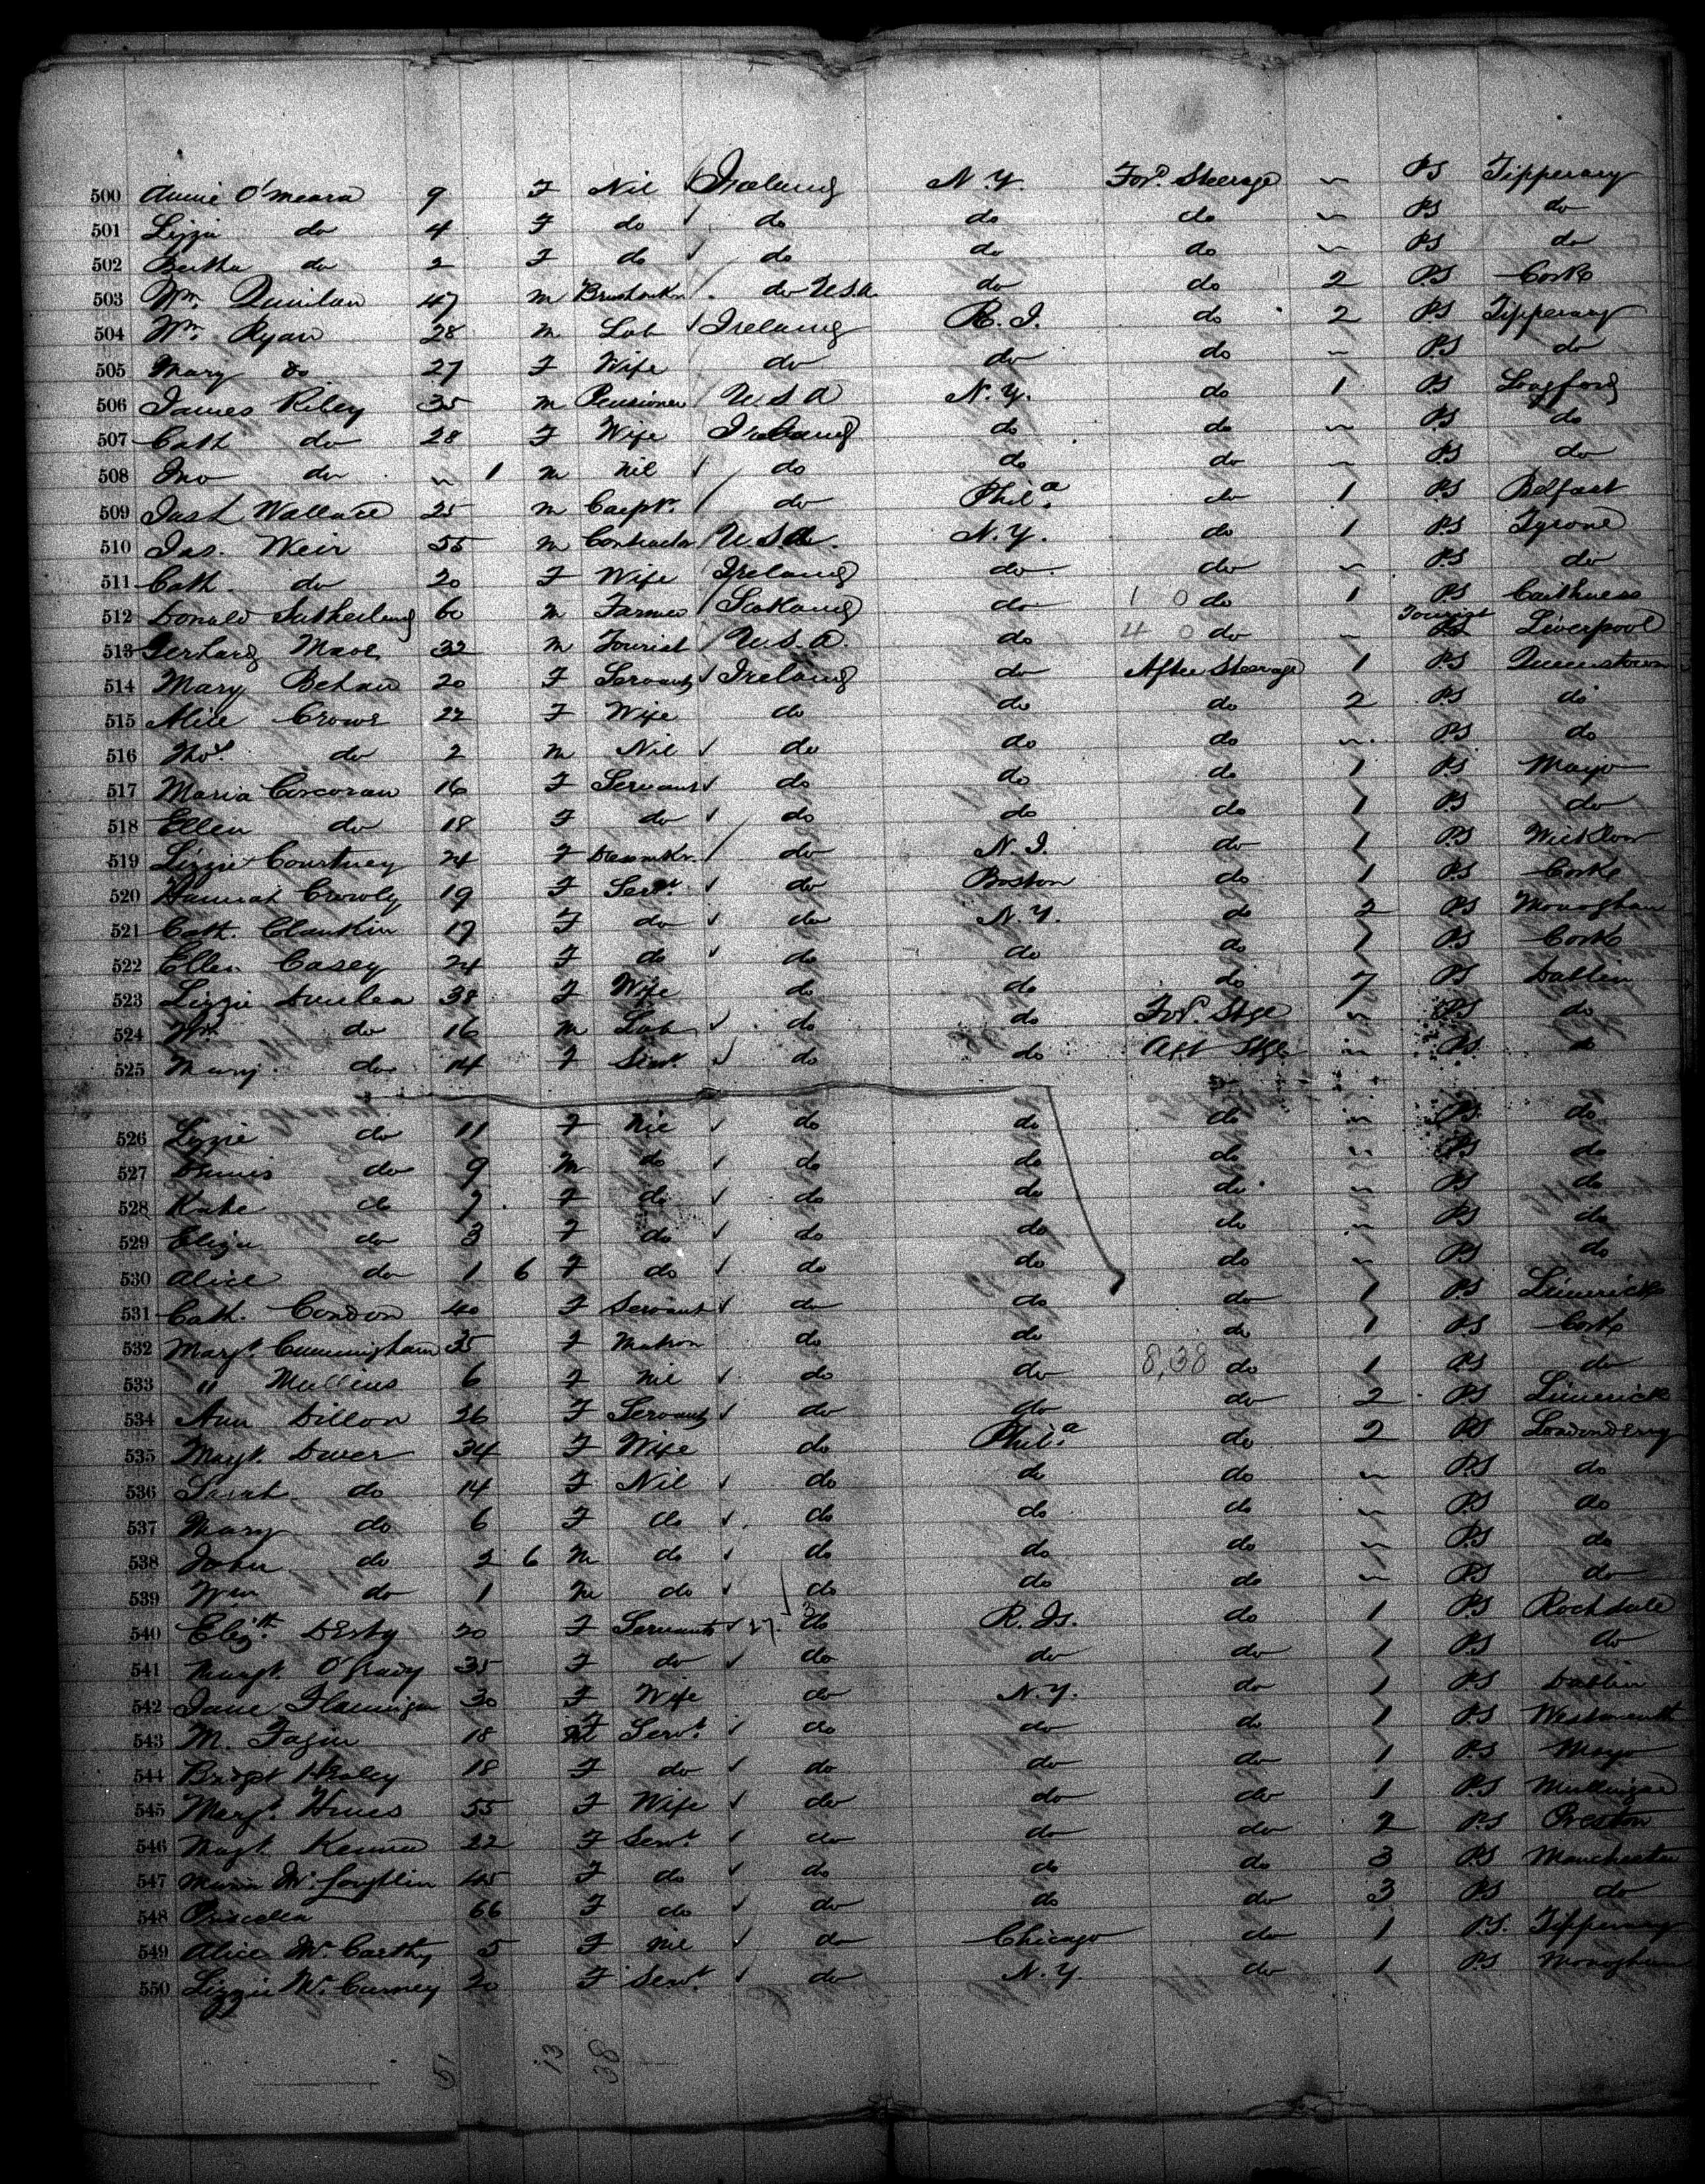 500 Annie O'Meara 9 F Nil Ireland N.Y. For'd Steerage ~ PS Tipperary
501 Lizzie do 4 F do do do do ~ PS do
502 Bertha do 2 F do do do do ~ PS do
503 Wm. Quinlan 47 M do U.S.A. do do 2 PS Cork
504 Wm. Ryan 28 M Lab Ireland R.I. do 2 PS Tipperary
505 Mary do 27 F Wife do do do ~ PS do
506 James Riley 35 M Pensioner U.S.A N.Y. do 1 PS Longford
507 Cath do 28 F Wife Ireland do do ~ PS do
508 Jno do ~ 1 M Nil do do do ~ PS do
509 Wallace 25 M Carptr. do Phila do 1 PS Belfast
510 Jas. Weir 55 M Contractor U.S.A. N.Y. do 1 PS Tyrone
511 Cath. do 20 F Wife Ireland do do ~ PS do
512 Donald Sutherland 60 M Farmer Scotland do 1 0 do 1 PS Caithness
513 Gerhard 32 M Tourist U.S.A. do 4 0 do ~ Tourist Liverpool
514 Mary Behan 20 F Servant Ireland do After Steerage 1 PS Queenstown
515 Alice Crowe 22 F Wife do do do 2 PS do
516 Thos. do 2 M Nil do do do ~ PS do
517 Maria Corcoran 16 F Servant do do do 1 PS Mayo
518 Ellen do 18 F do do do do 1 PS do
519 Lizzie Courtney 24 F Dressmkr. do N.J. do 1 PS Wicklow
520 Hannah Crowly 19 F Servt. do Boston do 1 PS Cork
521 Cath. Clankin 19 F do do N.Y. do 2 PS Monaghan
522 Ellen Casey 24 F do do do do 1 PS Cork
523 Lizzie 38 F Wife do do do 7 PS Dublin
524 Wm. do 16 M Lab do do For'd Stge ~ PS do
525 Mary do 14 F Servt. do do Aft Stge ~ PS do
526 Lizzie do 11 F Nil do do do ~ PS do
527 Dennis do 9 M do do do do ~ PS do
528 Kate do 7 F do do do do ~ PS do
529 Eliza do 3 F do do do do ~ PS do
530 Alice do 1 6 F do do do do ~ PS do
531 Cath. Condon 40 F Servant do do do 1 PS Limerick
532 Margt. Cunningham 35 F Matron do do do 1 PS Cork
533 " Mullins 6 F Nil do do 8,38 do 1 PS do
534 Ann Dillon 26 F Servant do do do 2 PS Limerick
535 Margt. Dwer 34 F Wife do Phila do 2 PS Londonderry
536 Sarah do 14 F Nil do do do ~ PS do
537 Mary do 6 F do do do do ~ PS do
538 John do 2 6 M do do do do ~ PS do
539 Wm do 1 M do do do do ~ PS do
540 Elizth. Derby 20 F Servant do R. Is. do 1 PS Rochdale
541 Margt. O'Grady 35 F do do do do 1 PS do
542 Jane Flannigan 30 F Wife do N.Y. do 1 PS Dublin
543 M. Fagin 18 F Servt. do do do 1 PS Westmeath
544 Bridgt Healey 18 F do do do do 1 PS Mayo
545 Margt. Hines 55 F Wife do do do 1 PS Mullingar
546 Magt Kenna 22 F Servt. do do do 2 PS Preston
547 McLoughlin 45 F do do do do 3 PS Manchester
548 Priscilla 66 F do do do do 3 PS do
549 Alice McCarthy 5 F Nil do Chicago do 1 P.S. Tipperary
550 Lizzie McCarney 20 F Servt do N.Y. do 1 PS Monaghan
51 13 38